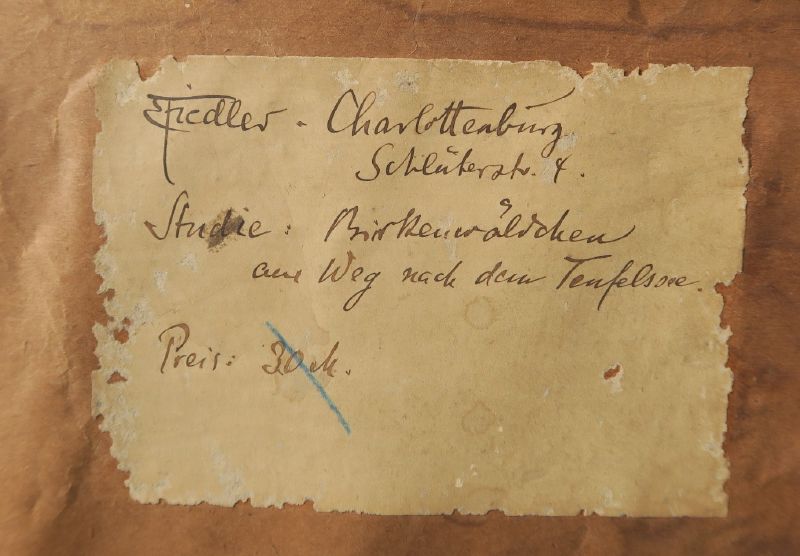 EFiedler - Charlottenburg
Schlüterstr. 4.
Studie: Birkenwäldchen
am Weg nach dem Teufelssee.
Preis: 30 M.